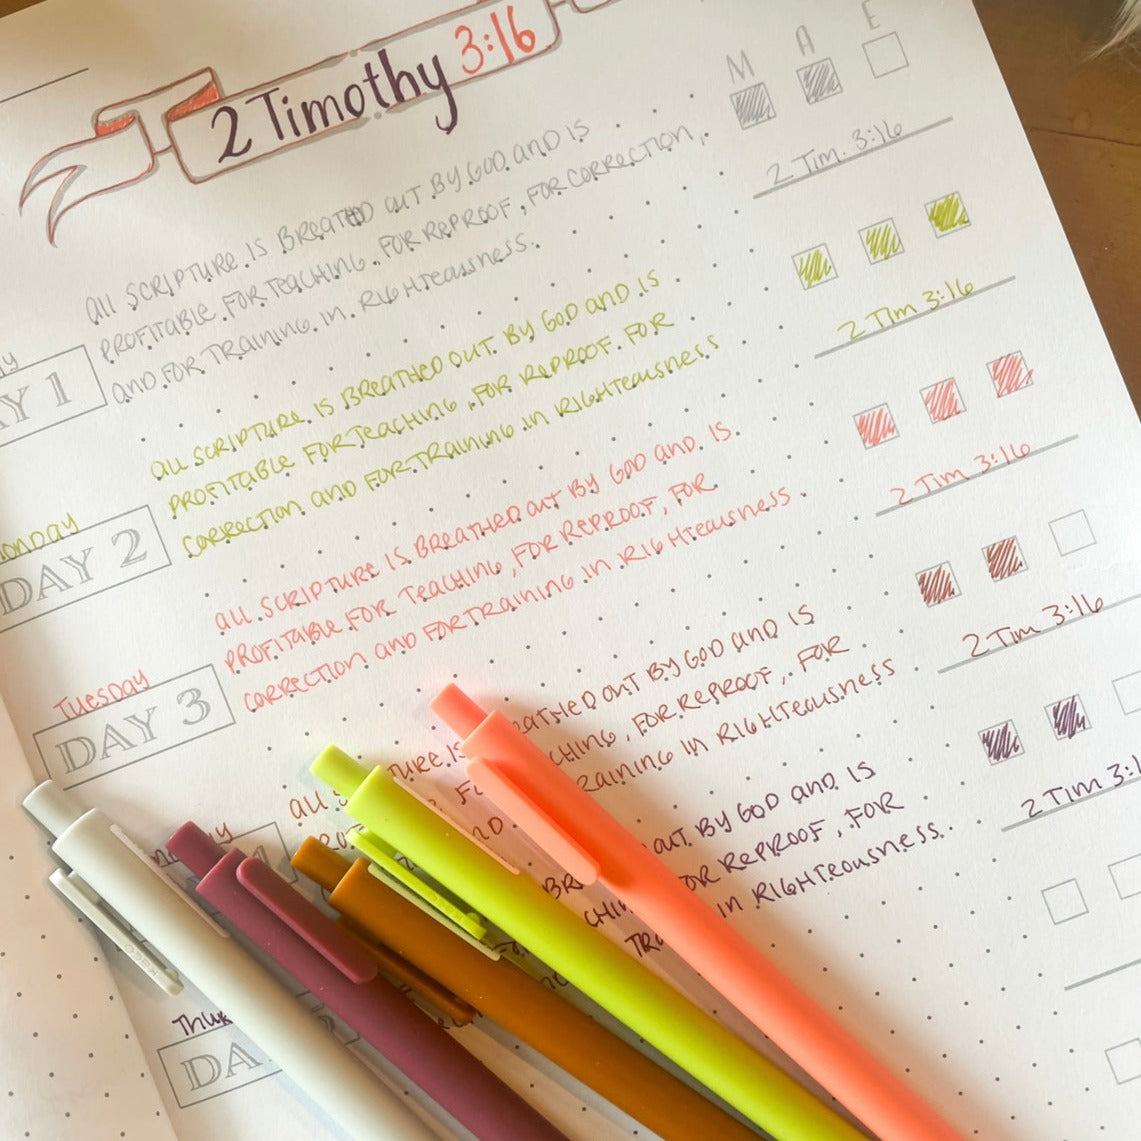 2 Timothy 3:16
M A E
ALL SCRIPTURE IS BREATHED OUT BY GOD AND IS
PROFITABLE FOR TEACHING, FOR REPROOF, FOR CORRECTION,
AND FOR TRAINING IN RIGHTEOUSNESS.
2 Tim. 3:16
Y 1
ALL SCRIPTURE IS BREATHED OUT BY GOD AND IS
PROFITABLE FOR TEACHING, FOR REPROOF. FOR
CORRECTION AND FOR TRAINING IN RIGHTEOUSNESS
2 Tim 3:16
ONDAY
DAY 2
ALL SCRIPTURE IS BREATHED OUT BY GOD AND IS
PROFITABLE FOR TEACHING, FOR REPROOF, FOR
CORRECTION AND FOR TRAINING IN RIGHTEOUSNESS
2 Tim 3:16
TUESDAY
DAY 3
ALL S TURE IS EATHED OUT BY GOD AND IS
CHING, FOR REPROOF, FOR
ND RAINING IN RIGHTEOUSNESS
2 Tim 3:16
OUT BY GOD AND IS
OR REPROOF, FOR
IN RIGHTEOUSNESS.
2 Tim 3:1
THU
DA
KACO